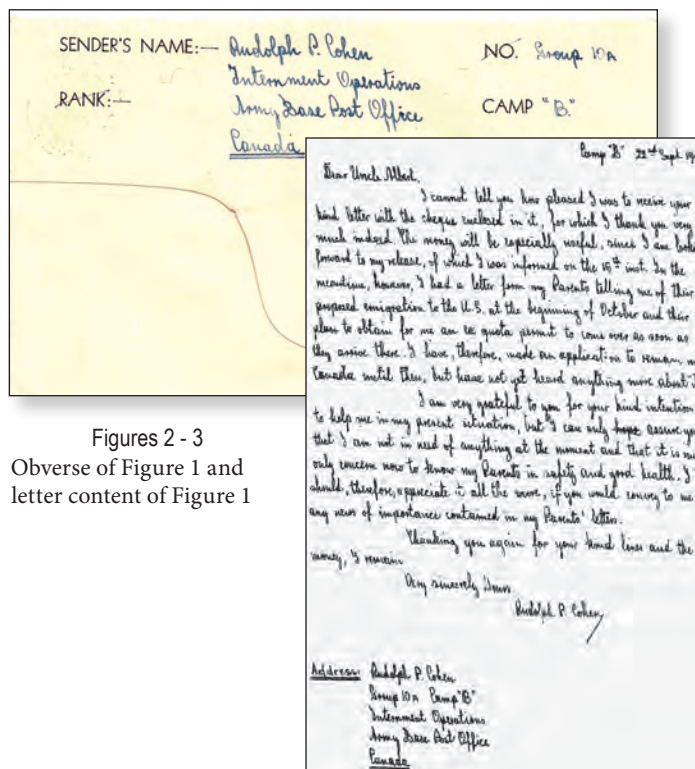 SENDER'S NAME:— Rudolph P. Cohen NO. Group 10A
Internment Operations
RANK:— Army Base Post Office CAMP "B."
Canada
Camp "B" 22nd Sept. 19
Dear Uncle Albert,
I cannot tell you how pleased I was to receive your
kind letter with the cheque enclosed in it, for which I thank you very
much indeed. The money will be especially useful, since I am
forward to my release, of which I was informed on the 15th inst. In the
meantime, however, I had a letter from my Parents telling me of their
proposed emigration to the U.S. at the beginning of October and their
plan to obtain for me an ex quota permit to come over as soon as
they arrive there. I have, therefore, made an application to remain
Canada until then, but have not yet heard anything more about
I am very grateful to you for your kind intention
to help me in my present situation, but I can only hope assure
that I am not in need of anything at the moment and that it is
only concern now to know my Parents in safety and good health. I
should, therefore, appreciate it all the more, if you would convey to me
any news of importance contained in my Parents' letters.
Thanking you again for your kind lines and the
money, I remain
Very sincerely Yours
Rudolph P. Cohen
Address: Rudolph P. Cohen
Group 10A Camp "B"
Internment Operations
Army Base Post Office
Canada
Figures 2 - 3
Obverse of Figure 1 and
letter content of Figure 1